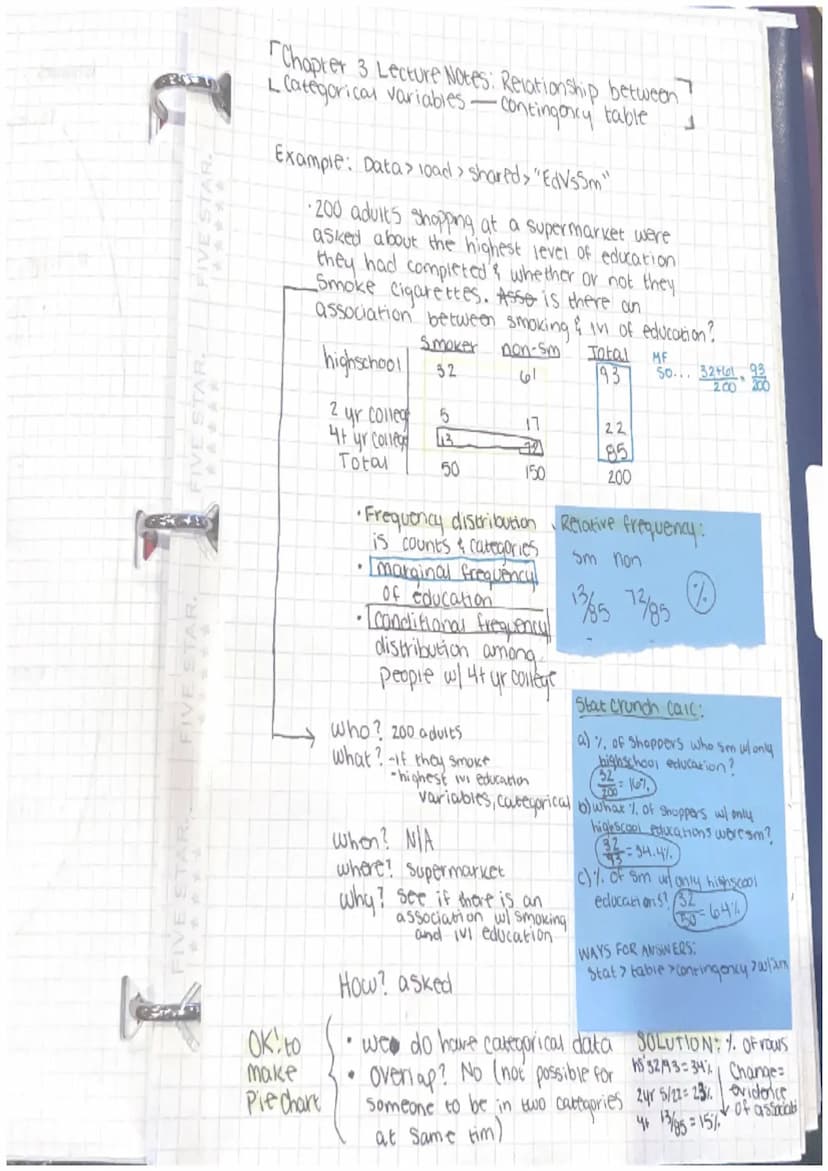 Chapter 3 Lecture Notes: Relationship between
Categorical variables — contingency table
Example: Data > load > shared > "EdVsSm"
• 200 adults shopping at a supermarket were
asked about the highest level of education
they had completed & whether or not they
smoke cigarettes. Asso is there an
association between smoking & lvl of education?
Smoker non-sm Total
highschool 32 61 93
MF
SO... 32+61/200 = 93/200
2 yr colleg 5 17 22
4+ yr colleg 13 72 85
Total 50 150 200
• Frequency distribution
is counts & categories
• marginal frequency
of education
• conditional frequency
distribution among
people w/ 4+ yr college
Relative frequency:
sm non
13/85 72/85 %
Who? 200 adults
What? -if they smoke
-highest lvl education
variables, categorical
When? N/A
where? supermarket
Why? see if there is an
association w/ smoking
and lvl education
How? asked
Stat crunch calc:
a) % of shoppers who sm w/ only
highschool education?
32/200 = 16%
b) what % of shoppers w/ only
highscool educations were sm?
32/93 = 34.4%
c) % of sm w/ only highscool
educations? 32/50 = 64%
WAYS FOR ANSWERS:
Stat > table > contingency > w/
OK! to
make
Pie chart
• we do have categorical data
• overlap? No (not possible for
someone to be in two cattgories
at same tim)
SOLUTION: % of rows
hs 32/93 = 34%
2yr 5/22 = 23%
4+ 13/85 = 15%
Change =
evidence
of associati
FIVE STAR.
FIVE STAR.
FIVE STAR.
FIVE STAR.